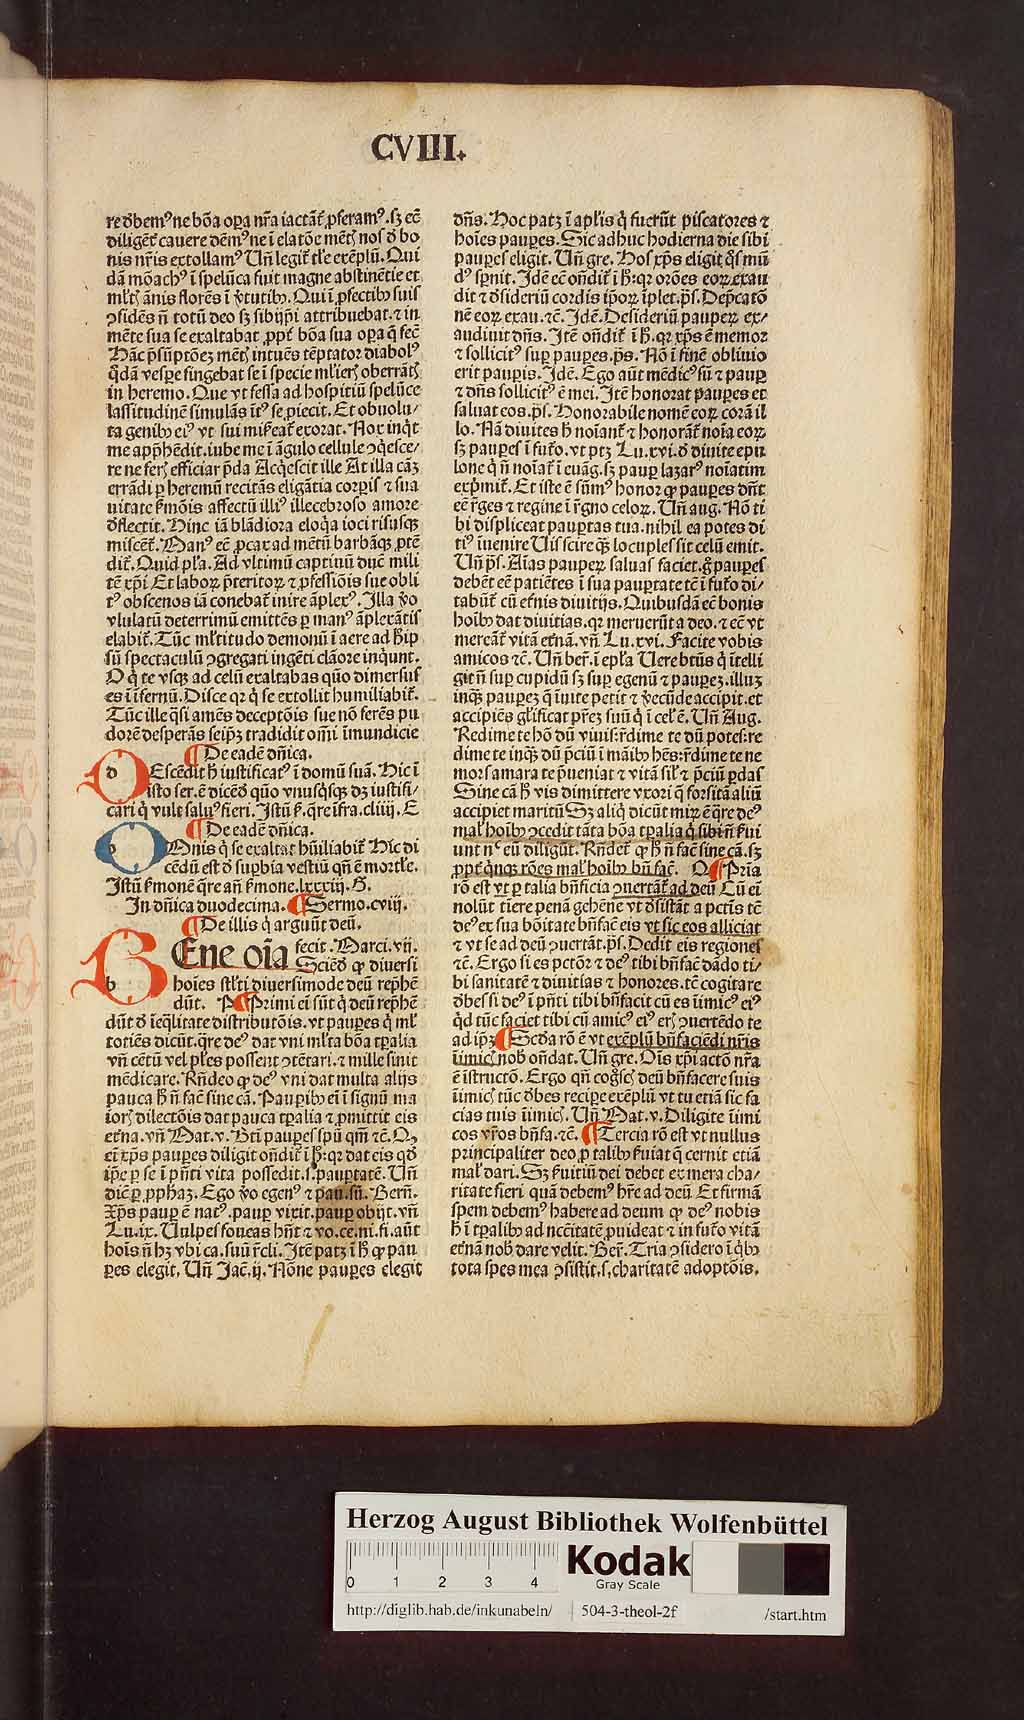 CVIII.
re debemꝰ ne bōa oꝑa nr̄a iactāt᷑ ꝓseramꝰ. sꝫ ec̄
diligēt᷑ cauere dēmꝰ ne ī elatōe mēt nos d̄ bo
nis nr̄is extollamꝰ Uñ legit᷑ tl̓e exēplū. Qui
dā mōachꝰ ī spelūca fuit magne abstinētie et
ml̓t ānis florēs ī v̓tutibꝫ. Qui ī ꝓfectibꝫ suis
ꝯsidēs ñ totū deo sꝫ sibiip̄i attribuebat. ⁊ in
mēte sua se exaltabat ꝓpt᷑ bōa sua oꝑa q̄ fec̄
Hāc p̄sūptōeꝫ mēt intuēs tēptator diabolꝰ
q̇dā vesꝑe fingebat se ī specie ml̓ier oberrāt
in heremo. Que vt fessa ad hospitiū spelūce
lassitudinē simulās ītꝰ se ꝓiecit. Et obuolu/
ta genibꝫ eiꝰ vt sui mis̓eat᷑ exorat. Nox inq̇t
me app̄hēdit. iube me ī āgulo cellule ꝯq̇esce/
re ne fer efficiar p̄da Acq̇escit ille At illa cāꝫ
errādi ꝑ heremū recitās eligātia corꝑis ⁊ sua
uitate s̓mōis affectū illiꝰ illecebroso amore
d̄flectit. Hinc iā blādiora eloq̇a ioci risusqꝫ
miscēt᷑. Manꝰ ec̄ ꝓcax ad mētū barbāqꝫ ꝓtē
dit᷑. Quid pl̓a. Ad vltimū captiuū ducit mili
tē xp̄i Et laboꝝ p̄teritoꝝ ⁊ ꝓfessiōis sue obli
tꝰ obscenos iā conebat᷑ inire āplexꝰ. Illa v̓o
vlulatū deterrimū emittēs ꝑ manꝰ āplexātis
elabit᷑. Tūc ml̓titudo demonū ī aere ad h̓ ip
sū spectaculū ꝯgregati ingēti clāore inq̇unt.
O q̇ te vsqꝫ ad celū exaltabas quō dimersus
es ī īfernū. Disce qꝛ q̇ se extollit humiliabit᷑.
Tūc ille q̇si amēs deceptōis sue nō ferēs pu
dorē desperās seip̄ꝫ tradidit om̄i īmundicie
¶ De eadē dn̄ica.
DEscēdit h̓ iustificatꝰ ī domū suā. Hic ī
isto ser. ē dicēd̄ quō vnusq̇sqꝫ dꝫ iustifi/
cari q̇ vult saluꝰ fieri. Istū s̓. q̄re īfra. cliiij. E
¶ De eadē dn̄ica.
OMnis q̇ se exaltat hūiliabit᷑ Hic di
cēdū est d̄ suꝑbia vestiū qn̄ ē mortl̓e.
Istū s̓monē q̄re añ s̓mone. lxxxiij. G.
In dn̄ica duodecima. ¶ Sermo. cviij.
¶ De illis q̇ arguūt deū.
BEne oīa fecit. Marci. vij.
Sciēd̄ ꝙ diuersi
hoīes stl̓ti diuersimode deū rep̄hē
dūt. P ¶ Primi ei sūt q̇ deū rep̄hē
dūt d̄ īeq̄litate distributōis. vt pauꝑes q̇ ml̓
totiēs dicūt. q̄re deꝰ dat vni ml̓ta bōa tꝑalia
vñ cētū vel pl̓es possent ꝯtētari. ⁊ mille sinit
mēdicare. Rn̄deo ꝙ deꝰ vni dat multa alijs
pauca h̓ ñ fac̄ sine cā. Pauꝑibꝫ ei ī signū ma
ior dilectōis dat pauca tꝑalia ⁊ ꝓmittit eis
et̓na. vñ Mat. v. Bt̄i pauꝑes spū qm̄ ⁊c̄. Qꝫ
ei xp̄s pauꝑes diligit on̄dit᷑ ī h̓: qꝛ dat eis qd̄
ip̄e ꝑ se ī pn̄ti vita possedit. s. pauꝑtatē. Uñ
dic̄ ꝑ ꝓphaꝫ. Ego v̓o egenꝰ ⁊ pau. sū. Bern̄.
Xp̄s pauꝑ ē natꝰ. pauꝑ vixit. pauꝑ obijt. vñ
Lu. ix. Uulpes foueas hn̄t ⁊ vo. ce. ni. fi. aūt
hoīs ñ hꝫ vbi ca. suū r̄cli. Itē patꝫ ī h̓ ꝙ pau
ꝑes elegit. Uñ Jac̄. ij. Nōne pauꝑes elegit
dn̄s. Hoc patꝫ ī apl̓is q̇ fuerūt piscatores ⁊
hoīes pauꝑes. Sic adhuc hodierna die sibi
pauꝑes eligit. Uñ gre. Hos xp̄s eligit q̇s mū
dꝰ sp̄nit. Idē ec̄ on̄dit᷑ ī h̓: qꝛ orōes eoꝝ exau
dit ⁊ d̄sideriū cordis ip̄oꝝ īplet. ps̄. Dep̄catō
nē eoꝝ exau. ⁊c̄. Idē. Desideriū pauꝑeꝝ ex/
audiuit dn̄s. Itē on̄dit᷑ ī h̓. qꝛ xp̄s ē memor
⁊ sollicitꝰ suꝑ pauꝑes. ps̄. Nō ī finē obliuio
erit pauꝑis. Idē. Ego aūt mēdicꝰ sū ⁊ pauꝑ
⁊ dn̄s sollicitꝰ ē mei. Itē honorat pauꝑes et
saluat eos. ps̄. Honorabile nomē eoꝝ corā il
lo. Nā diuites h̓ noīant᷑ ⁊ honorāt᷑ noīa eoꝝ
sꝫ pauꝑes ī fut̓o. vt ptꝫ Lu. xvi. d̄ diuite epu
lone q̇ ñ noīat᷑ ī euāg. sꝫ pauꝑ lazarꝰ noīatim
exp̓mit᷑. Et iste ē sūmꝰ honor ꝙ pauꝑes dn̄t
ec̄ r̄ges ⁊ regine ī r̄gno celoꝝ. Uñ aug. Nō ti
bi displiceat pauꝑtas tua. nihil ea potes di
tiꝰ īuenire Uis scire qꝫ locuples sit celū emit.
Uñ ps̄. Aīas pauꝑeꝝ saluas faciet. g̊ pauꝑes
debēt ec̄ patiētes ī sua pauꝑtate tē ī fut̓o di/
tabūt᷑ cū et̓nis diuitijs. Quibusdā ec̄ bonis
hoībꝫ dat diuitias. qꝛ meruerūt a deo. ⁊ ec̄ vt
mereāt᷑ vitā et̓nā. vñ Lu. xvi. Facite vobis
amicos ⁊c̄. Uñ ber̄. ī epl̓a Uere btūs q̇ ītelli
git ñ suꝑ cupidū sꝫ suꝑ egenū ⁊ pauꝑeꝫ. illuꝫ
inqꝫ pauꝑeꝫ q̇ īuite petit ⁊ v̓ecūde accipit. et
accipiēs gl̓ificat pr̄eꝫ suū q̇ ī cel̓ ē. Uñ Aug.
Redime te hō dū viuis: r̄dime te dū potes: re
dime te inqꝫ dū p̄ciū ī māibꝫ hēs: r̄dime te ne
mors amara te p̄ueniat ⁊ vitā sil̓ ⁊ p̄ciū ꝑdas
Sine cā h̓ vis dimittere vxori q̄ forsitā aliū
accipiet maritū Sꝫ aliq̇ dicūt miꝝ ē q̄re deꝰ
mal̓ hoībꝫ ꝯcedit tāta bōa tꝑalia q̇ sibi ñ s̓ui
unt nᶜ eū diligūt. Rn̄det᷑ ꝙ h̓ ñ fac̄ sine cā. sꝫ
ꝓpt᷑ q̇nqꝫ rōes mal̓ hoībꝫ bn̄ fac̄. O ¶ Pria
rō est vt ꝑ talia bn̄ficia ꝯuertāt᷑ ad deū Cū ei
nolūt tīere penā gehēne vt d̄sistāt a pctīs tē
deꝰ ex sua bōitate bn̄fac̄ eis vt sic eos alliciat
⁊ vt se ad deū ꝯuertāt. ps̄. Dedit eis regiones
⁊c̄. Ergo si es pctōr ⁊ deꝰ tibi bn̄fac̄ dādo ti/
bi sanitatē ⁊ diuitias ⁊ honores. tē cogitare
d̄bes si deꝰ ī pn̄ti tibi bn̄facit cū es īimicꝰ eiꝰ
q̇d tūc faciet tibi cū amicꝰ eiꝰ er ꝯuertēdo te
ad ip̄ꝫ ¶ Scd̄a rō ē vt exēplū bn̄faciēdi nr̄is
īimic nob̄ on̄dat. Uñ gre. Oīs xp̄i actō nr̄a
ē īstructō. Ergo qn̄ cog̓sc deū bn̄facere suis
īimic tūc d̄bes reciꝑe exēplū vt tu etiā sic fa
cias tuis īimic. Uñ Mat. v. Diligite īimi
cos vr̄os bn̄fa. ⁊c̄. ¶ Tercia rō est vt nullus
principaliter deo ꝓ talibꝫ s̓uiat q̄ cernit etiā
mal̓ dari. Sꝫ s̓uitiū dei debet ex mera cha/
ritate fieri quā debemꝰ hr̄e ad deū Et firmā
spem debemꝰ habere ad deum ꝙ deꝰ nobis
h̓ ī tꝑalibꝫ ad nccītatē ꝓuideat ⁊ in fut̓o vitā
et̓nā nob̄ dare velit. Ber̄. Tria ꝯsidero ī q̇bꝫ
tota spes mea ꝯsistit. s. charitatē adoptōis.
Herzog August Bibliothek Wolfenbüttel
0 1 2 3 4
Kodak
Gray Scale
http://diglib.hab.de/inkunabeln/ 504-3-theol-2f /start.htm